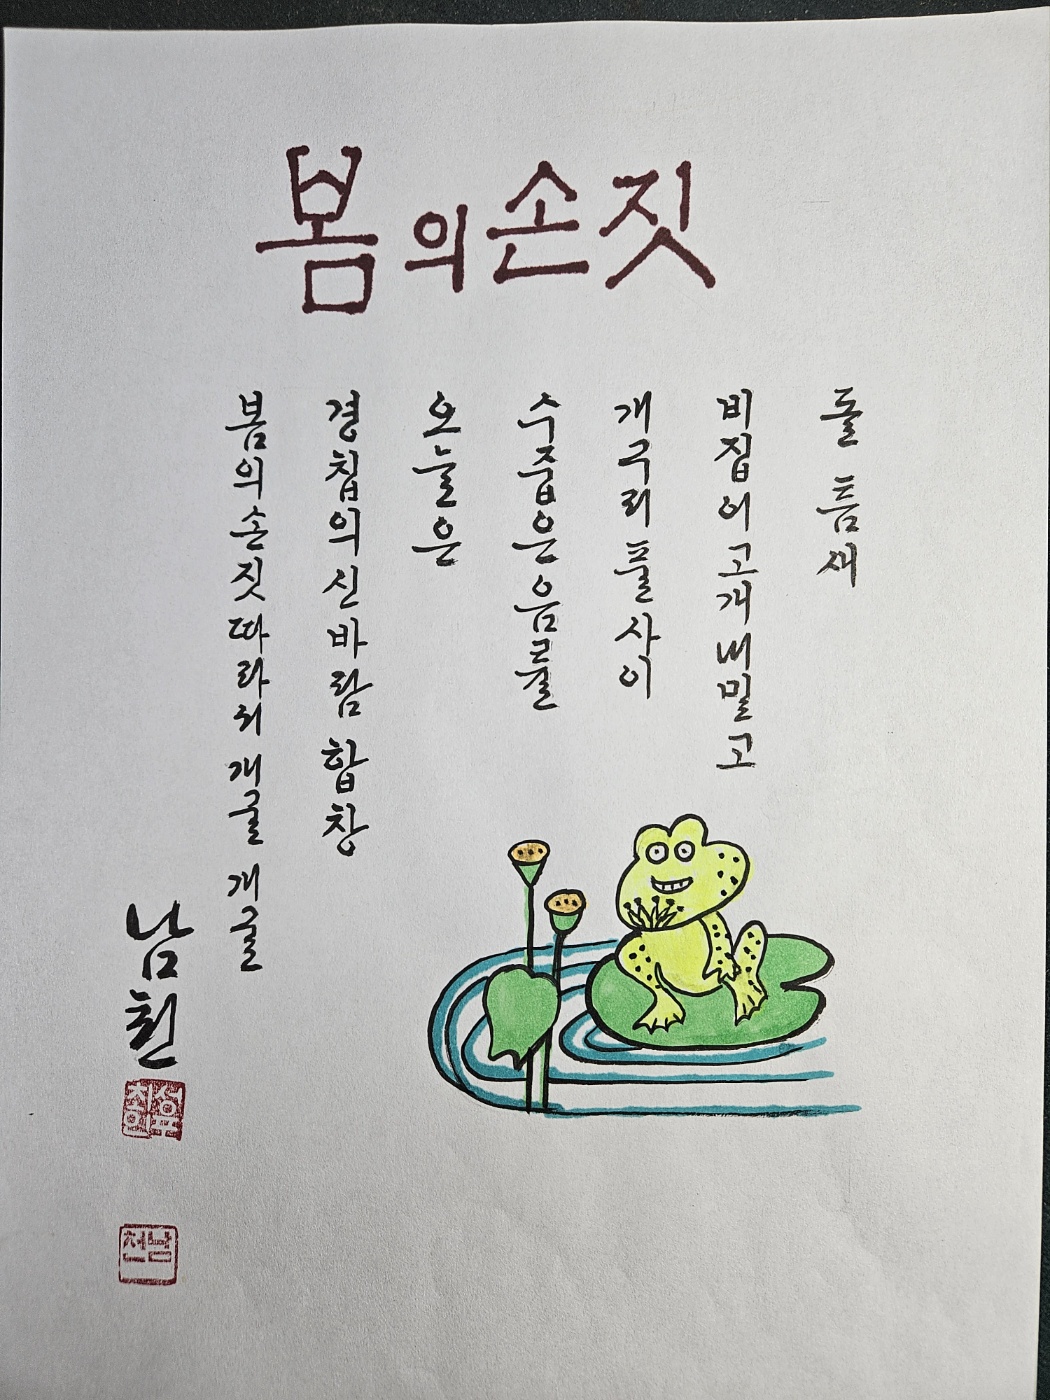 봄의 손짓
돌 틈새
비집어 고개 내밀고
개구리 풀 사이
수줍은 음률
오늘은
경칩의 신바람 합창
봄의 손짓 따라 개굴 개굴
남천
남천